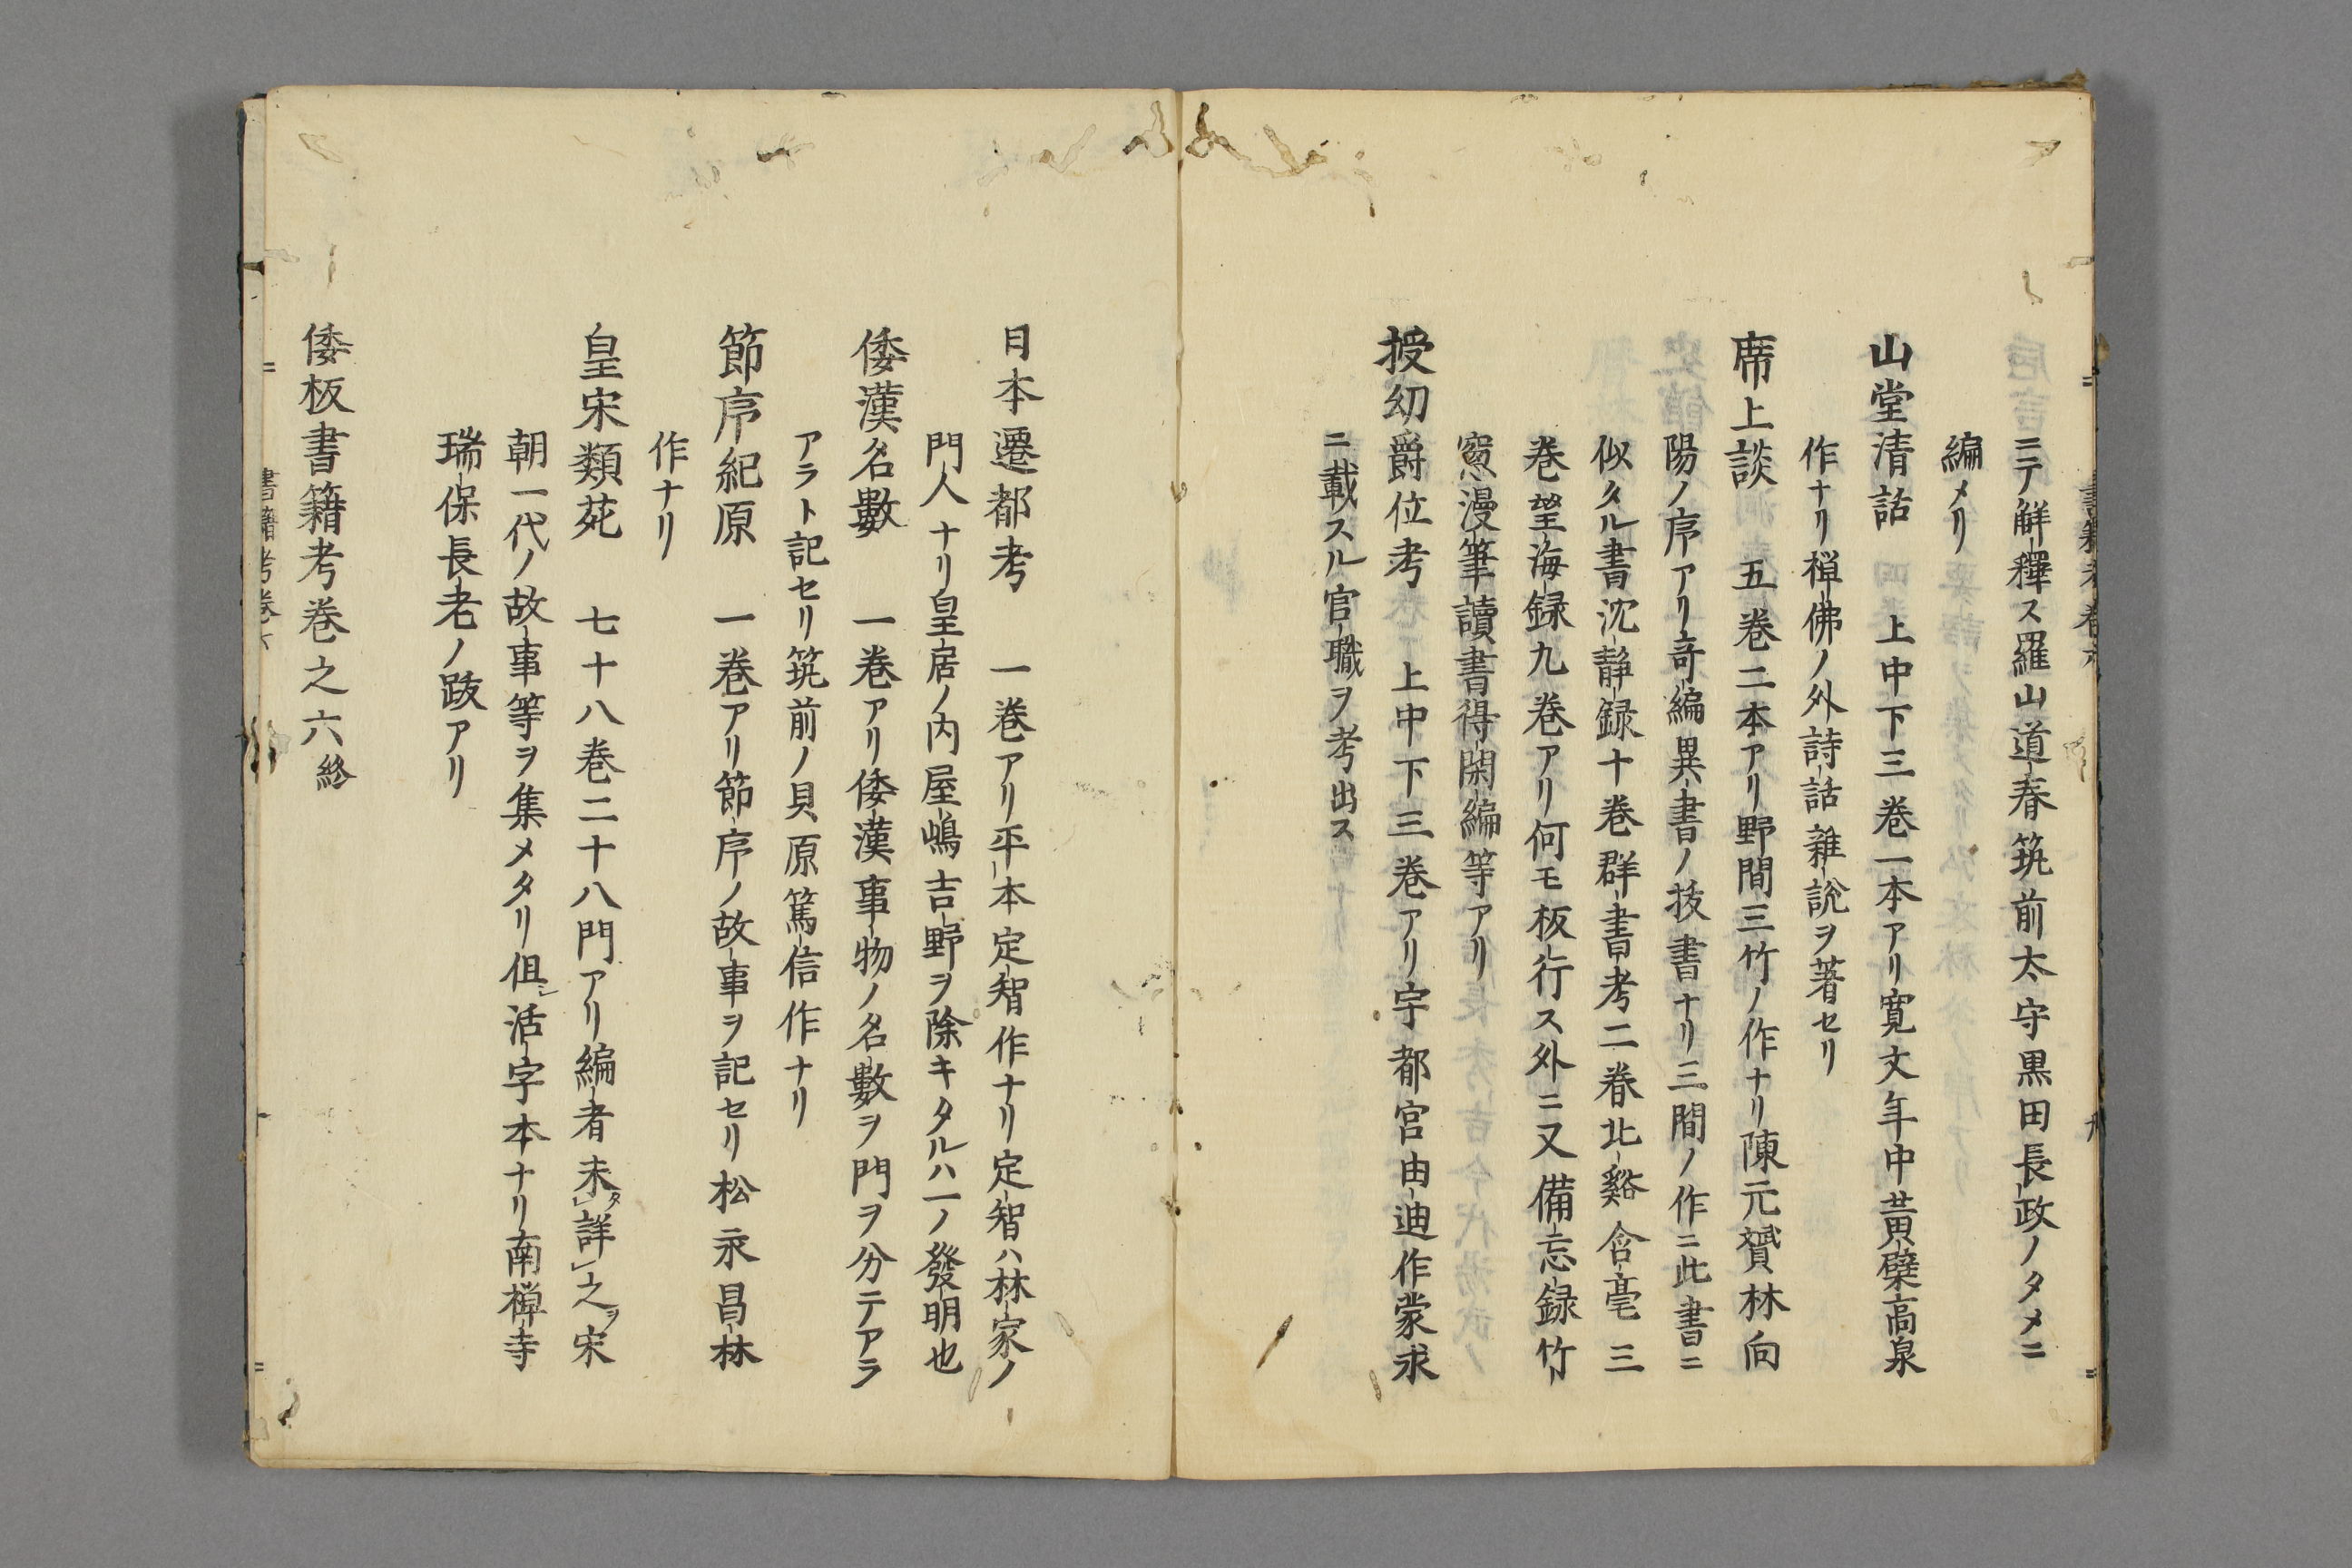 ニテ解釋ス羅山道春筑前太守黒田長政ノタメニ
編メリ
山堂清話　上中下三巻一本アリ寛文年中黄檗高泉
作ナリ禅佛ノ外詩話雜說ヲ著セリ
席上談　五巻二本アリ野間三竹ノ作ナリ陳元贇林向
陽ノ序アリ竒編異書ノ抜書ナリ三間ノ作ニ此書ニ
似タル書沈静録十巻群書考二巻北谿含毫三
巻望海録九巻アリ何モ板行ス外ニ又備忘録竹
窓漫筆讀書得閑編等アリ
授幼爵位考　上中下三巻アリ宇都宮由迪作蒙求
ニ載スル官職ヲ考出ス
日本遷都考　一巻アリ平本定智作ナリ定智ハ林家ノ
門人ナリ皇居ノ内屋嶋吉野ヲ除キタルハ一ノ發明也
倭漢名數　一巻アリ倭漢事物ノ名數ヲ門ヲ分テアラ
アラト記セリ筑前ノ貝原篤信作ナリ
節序紀原　一巻アリ節序ノ故事ヲ記セリ松永昌林
作ナリ
皇宋類苑　七十八巻二十八門アリ編者未タ詳之ヲ宋
朝一代ノ故事等ヲ集メタリ但シ活字本ナリ南禅寺
瑞保長老ノ跋アリ
倭板書籍考巻之六終
書籍考巻六